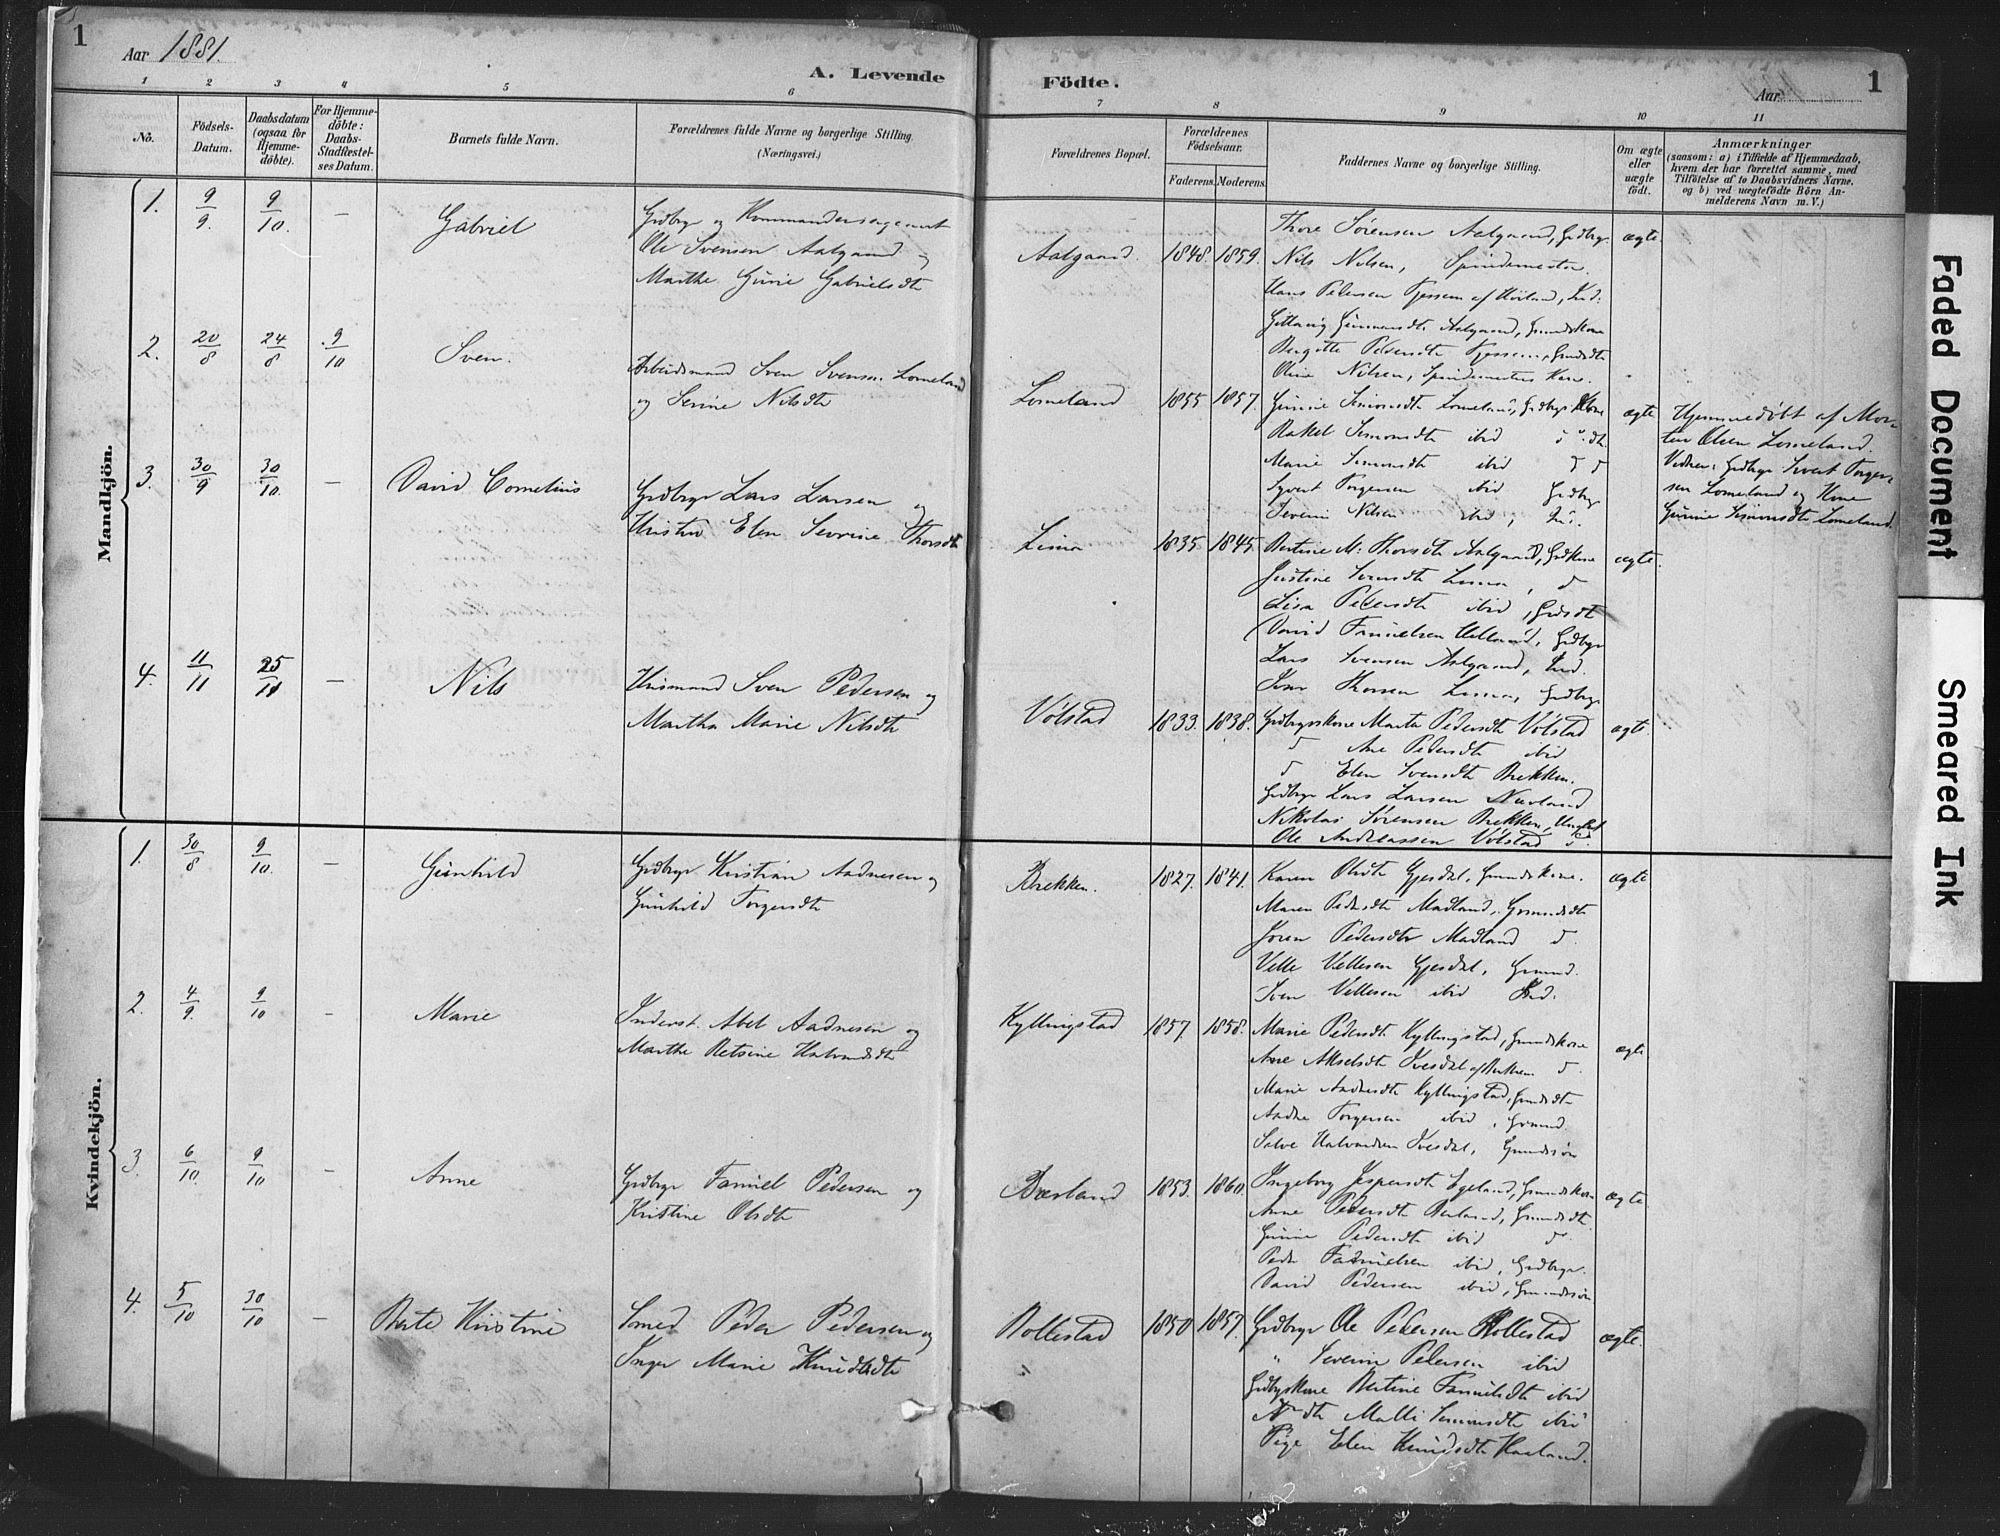 1
Aar 1881.
A. Levende Födte.
Aar
1
1 2 3 4 5 6 7 8 9 10 11
No.
Födsels-Datum.
Daabsdatum (ogsaa for Hjemme-döbte).
For Hjemme-döbte: Daabs-Stadfæstel-ses Datum.
Barnets fulde Navn.
Forældrenes fulde Navne og borgerlige Stilling.
(Næringsvei.)
Forældrenes Bopæl.
Forældrenes Födselsaar.
Faderens. Moderens.
Faddernes Navne og borgerlige Stilling.
Om ægte eller uægte födt.
Anmærkninger
(saasom: a) i Tilfælde af Hjemmedaab,
hvem der har forrettet samme, med
Tilföielse af to Daabsvidners Navne.
og b) ved uægtefödte Börn An-
melderens Navn m. V.)
Mandkjön.
1. 9/9. 9/10. – Gabriel
Grdbrgr og Kommandersergeant
Ole Svensen Aalgaard og
Marthe Gurie Gabrielsdtr
Aalgaard. 1848. 1859.
Thore Sørensen Aalgaard, Grdbrgr. ægte
Nils Nilsen, Spindemester.
Hans Pedersen
Aalgaard, Gmdskone
Bergitte Pedersdtr
Oline Nilsen, Spindemesters Kone.
2. 20/8 24/8 9/10 Sven.
Arbeidsmand Sven Svensen Lomeland
og Serine Nilsdtr
Lomeland 1855 1857.
Gunnie Simonsdtr Lomeland, Grdbrgrs Kone ægte
Rakel Simonsdtr ibid
Marie Simonsdtr ibid
Syvert Torgersen ibid Grdbrgr
Severin Nilsen ibid,
Hjemmedøbt af Mor-
ten Olsen Lomeland.
Vidner: Grdbrgr Sivert Torger-
sen Lomeland og Kone
Gunnie Simonsdtr Lomeland.
3. 30/9 30/10. – David Cornelius
Grdbrgr Lars Larsen og
Kristin Elen Sevrine Thorsdtr
Lima 1835 1845.
Bertine M. Thorsdtr Aalgaard, Grdkone ægte.
Justine Svensdtr Lima, d
Lisa Pedersdtr ibid, Grdsdtr
David Fanuelsen Helland, Grdbrgr
Lars Svensen Aalgaard,
Thorsen Lima, Grdbrgr
4. 11/11 25/11 – Nils
Husmand Sven Pedersen og
Martha Marie Nilsdtr
Vølstad 1833. 1838.
Grdbrgrskone Marta Pedersdtr Vølstad ægte
d Ane Pedersdtr ibid
d Elen Svensdtr Brekken.
Grdbrgr Lars Larsen Nævland
Nikolai Sørensen Brekken, Ungkarl
Ole Andreassen Vølstad d
Kvindekjön.
1. 30/8 9/10. – Gunhild
Grdbrgr Kristian Aadnesen og
Gunhild Torgersdtr
Brekken. 1827. 1841.
Karen Olsdtr Gjesdal, Gmdskone. ægte
Maren Pedersdtr Madland, Gmmdsdtr
Joren Pedersdtr Madland d.
Velle Vellesen Gjesdal, Grmd.
Sven Vellesen ibid
2. 4/9. 9/10 – Marie
Inderst. Abel Aadnesen og
Marthe Betsine Halvardsdtr
Kyllingstad 1857. 1858.
Marie Pedersdtr Kyllingstad, Gmdskone ægte
Ane Akselsdtr Ivesdal af Brekken d.
Marie Aadnesdtr Kyllingstad, Gmdsdtr
Aadne Torgersen ibid, Grmd.
Salve Halvardsen Ivesdal, Gmdssøn
3. 6/10. 9/10 – Anne
Grdbrgr Fanuel Pedersen og
Kristine Olsdtr
Bærland 1853. 1860.
Ingeborg Jespersdtr Egeland, Gmdskone ægte
Anne Pedersdtr Berland, Gmdsdtr.
Gurine Pedersdtr ibid d
Peder Fanuelsen ibid, Grdbrgr.
David Pedersen ibid, Gmdssøn
4. 5/10 30/10 – Berte Kristine
Smed Peder Pedersen og
Inger Marie Knudsdtr
Rollestad 1850 1857.
Grdbrgr Ole Pedersen Rollestad ægte.
" Severin Pedersen ibid
Grdbrgskone Bertine Fanuelsdtr ibid
Malli Simonsdtr ibid
Pige Elen Knudsdtr Haaland.
Faded Document
Smeared Ink